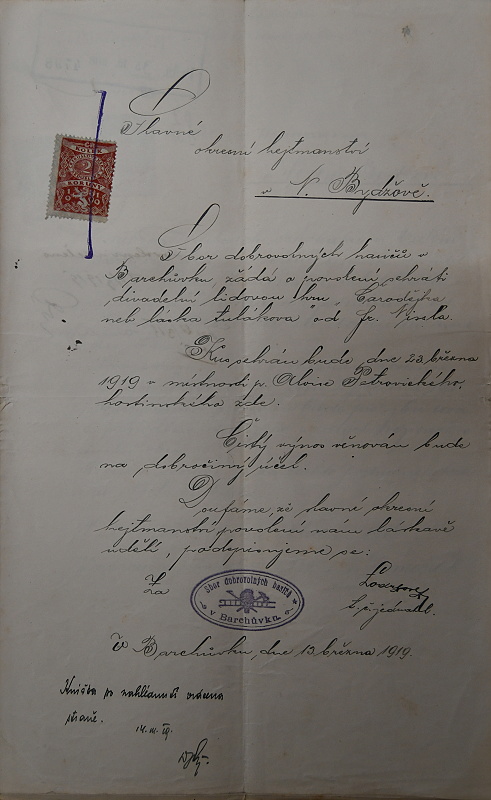 Slavné
okresní hejtmanství
v N. Bydžově.
KOLEK
2
KORUNY
Sbor dobrovolných hasičů v
Barchůvku, žádá o povolení, sehráti
divadelní lidovou hru „Čarodějka
neb láska tulákova" od Fr.
Kus sehrán bude dne 23. března
1919 v místnosti p. Aloise Petrovického,
hostinského zde.
Čistý výnos věnován bude
na dobročinný účel.
Doufáme, že slavné okresní
hejtmanství povolení nám láskavě
udělí, podepisujeme se:
Za
Sbor dobrovolných hasičů
v Barchůvku.
t. č. jednatel.
V Barchůvku, dne 13. března 1919.
Knížka po nahlédnutí vrácena
straně.
14. III. 19.